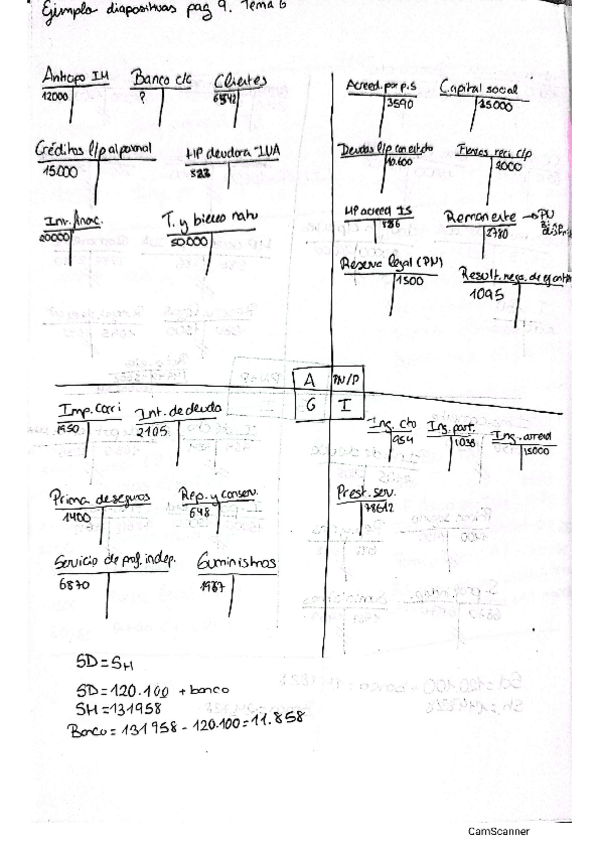 Ejemplo diapositivas pag 9. Tema 6
Anticipo IM Banco c/c Clientes
12000 ? 6542
Créditos l/p al personal HP deudora IVA
15.000 523
Inv. Financ. T. y bienes natu
20000 50000
Acreed. por p.s Capital social
3590 25000
Deudas l/p con ent. cto Fianzas reci. c/p
10.600 2000
HP acreed IS Remanente → PN
186 2780
Reserva legal (PN) Result. nega. de ej. ant
1500 1095
A PN/P
G I
Imp. corri Int. de deuda
1950 2105
Prima de seguros Rep. y conserv.
1400 648
Servicio de prof. indep. Suministros
6870 1987
Ing. cto Ing. part. Ing. arrend
954 1036 15000
Prest. serv.
78612
SD = SH
SD = 120.100 + banco
SH = 131958
Banco = 131958 - 120.100 = 11.858
CamScanner